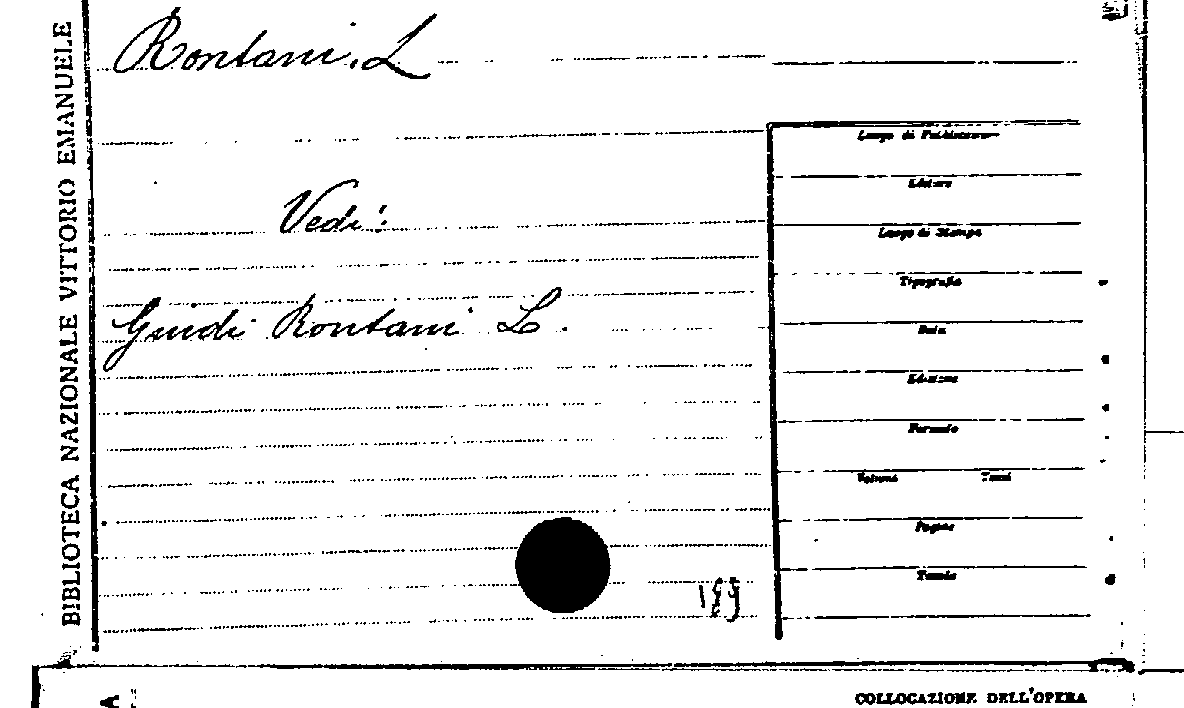 BIBLIOTECA NAZIONALE VITTORIO EMANUELE
Rontani. L
Vedi:
Guidi Rontani L.
Luogo di Pubblicazione
Editore
Luogo di Stampa
Tipografia
Data
Edizione
Formato
Volumi Tomi
Pagine
Tavole
COLLOCAZIONE DELL'OPERA